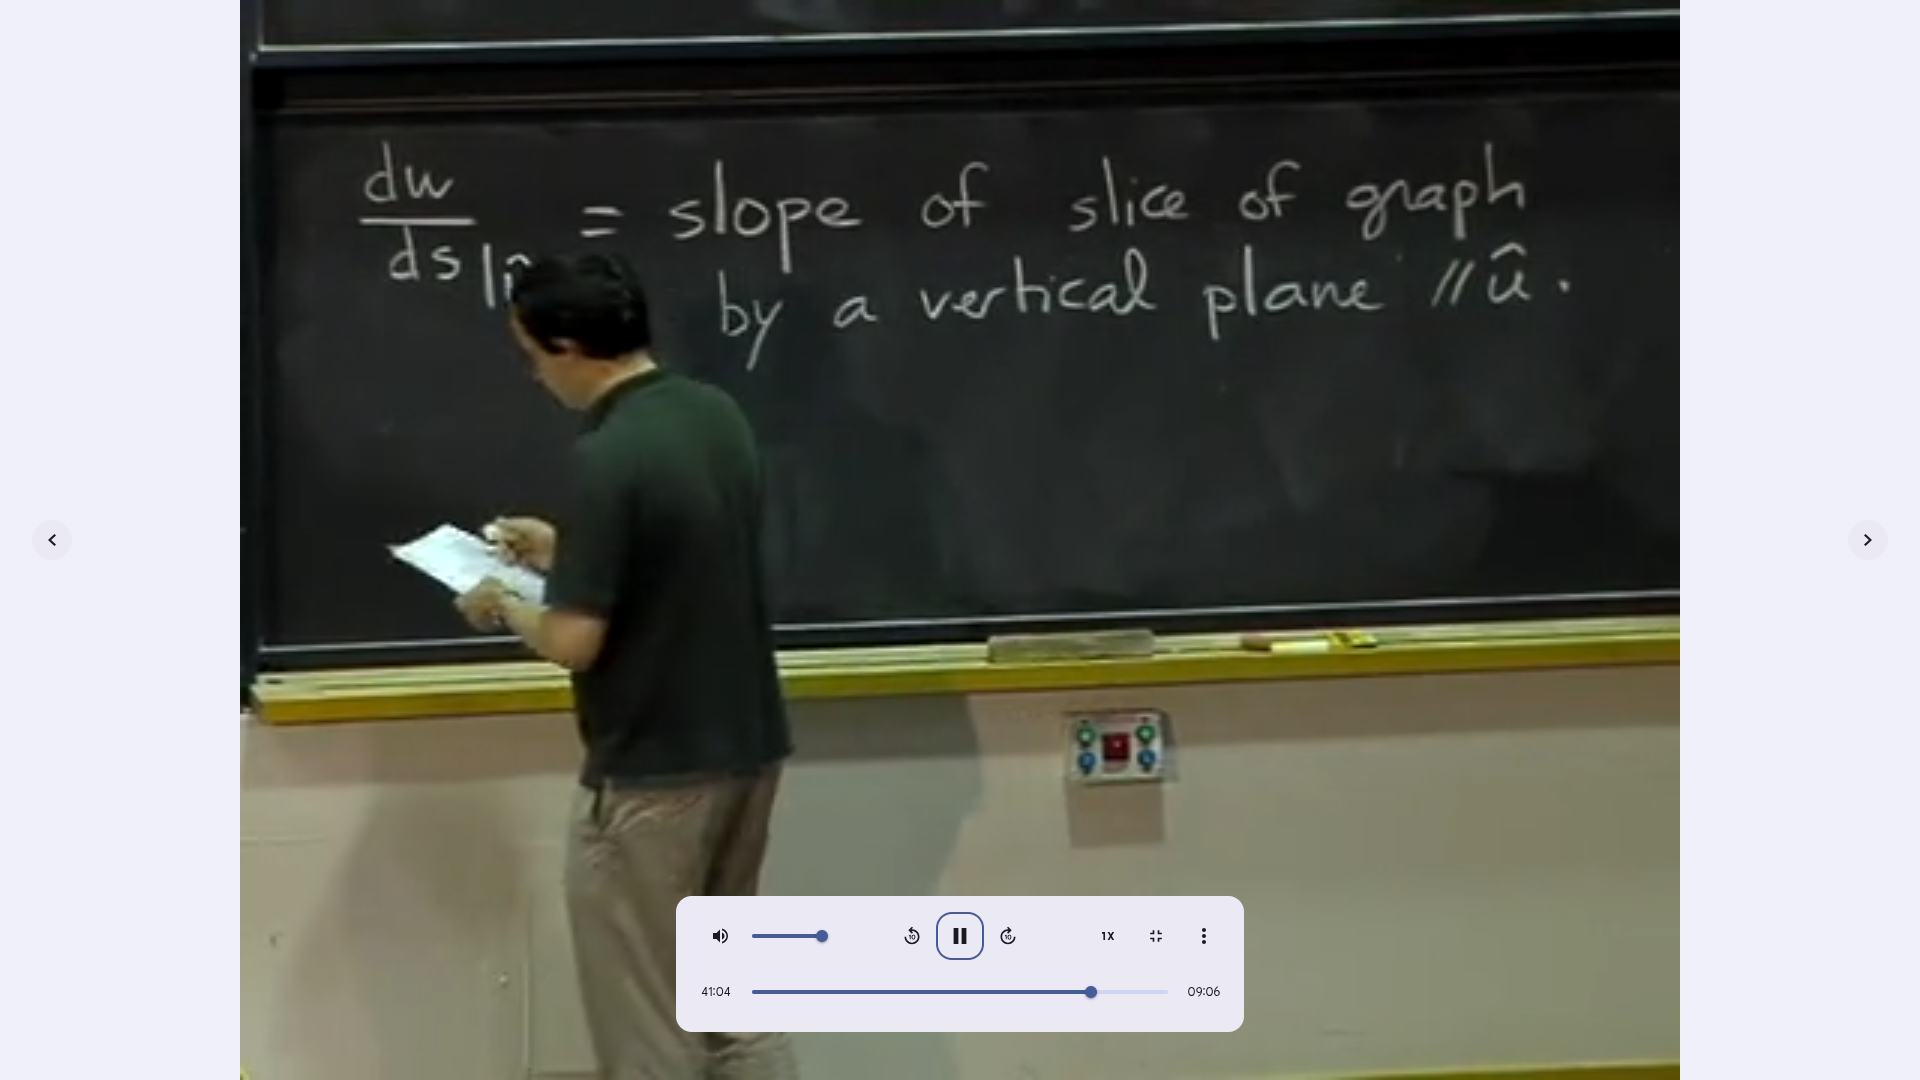 dw
ds = slope of slice of graph
by a vertical plane // û.
1X
41:04
09:06